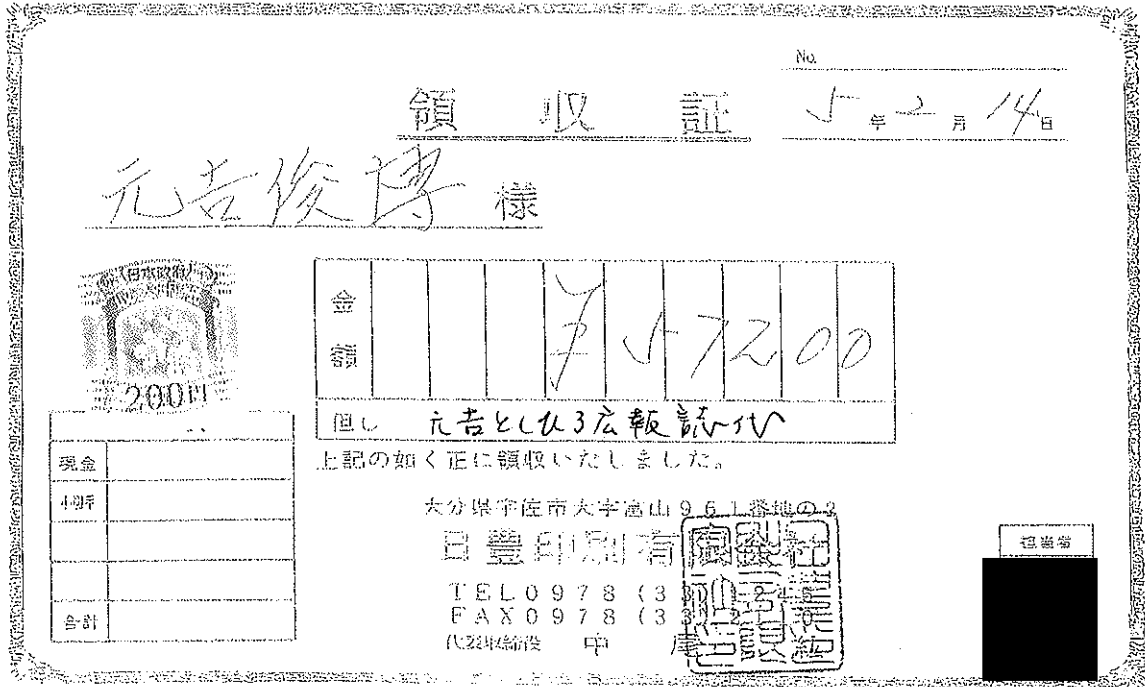 No.
領収証
5年2月14日
元吉俊博 様
日本政府
200円
金額 ¥57200
但し 元吉としひろ広報誌代
上記の如く正に領収いたしました。
現金
小切手
合計
大分県宇佐市大字富山961番地の2
日豊印刷有限会社
TEL0978(33)
FAX0978(33)
代表取締役 中尾
担当者